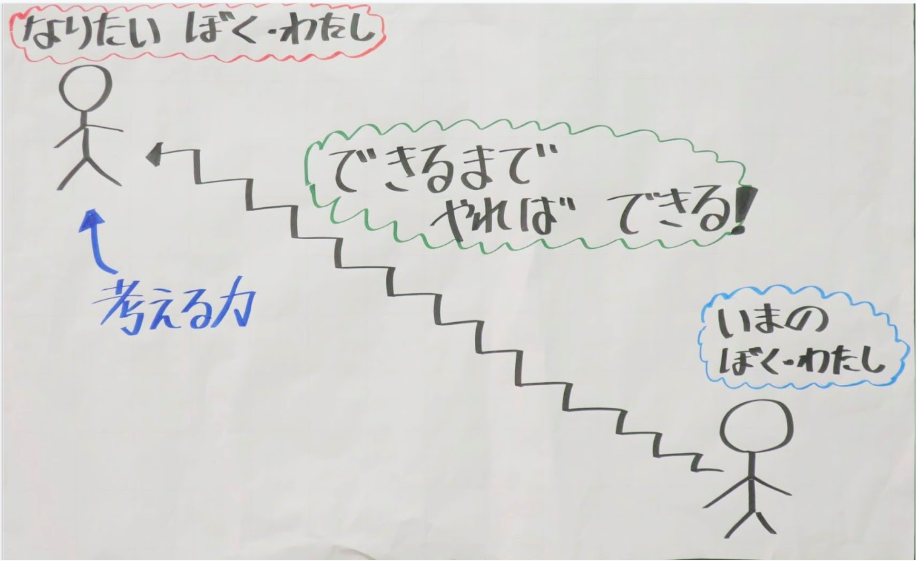 なりたい ぼく・わたし
できるまで
やれば できる!
考える力
いまの
ぼく・わたし